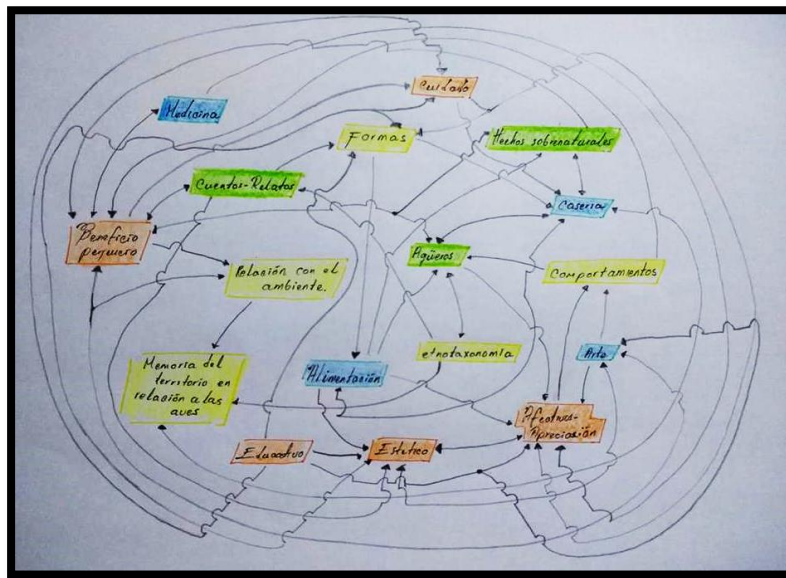 Cuidado
Medicina
Formas
Hechos sobrenaturales
Cuentos-Relatos
Caseria
Beneficio
perjuicio
Agüeros
Relación con el
ambiente.
Comportamientos
etnotaxonomía
Arte
Memoria del
territorio en
relación a las
aves
Alimentación
Afectivos-
Apreciasión
Educativo
Estetico